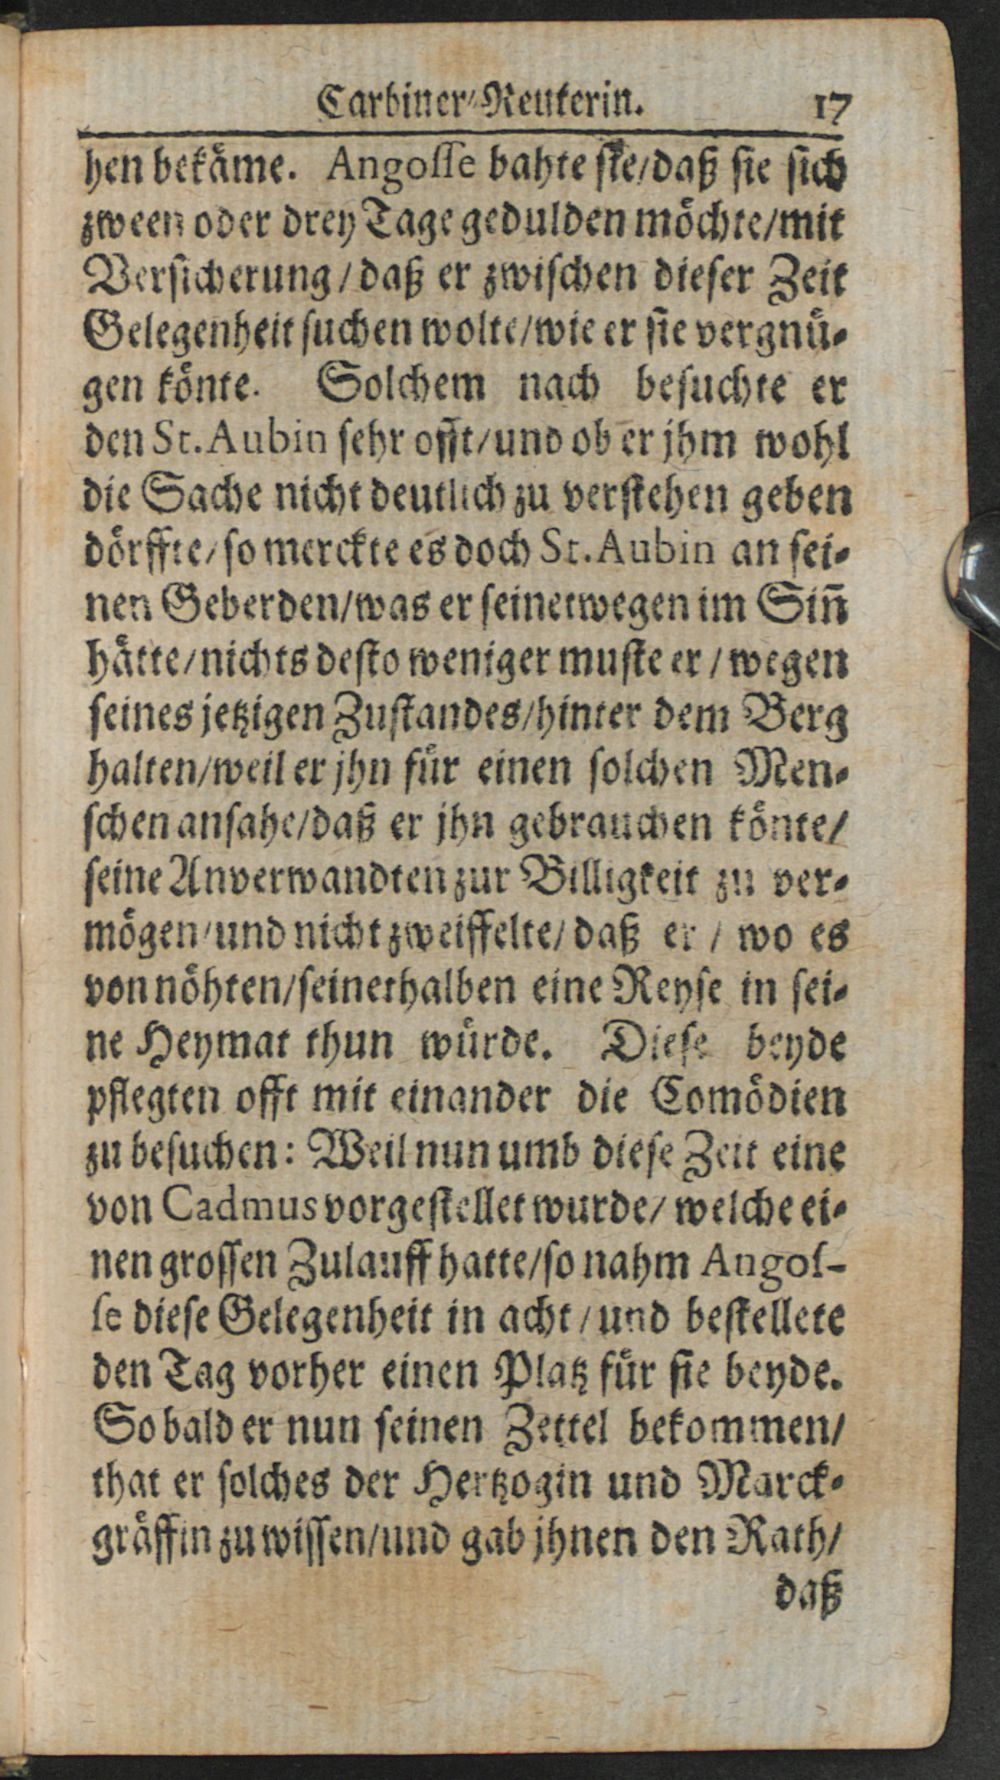 Carbiner-Reuterin. 17
hen bekäme. Angosse bahte sie/daß sie sich
zween oder drey Tage gedulden möchte/mit
Versicherung/daß er zwischen dieser Zeit
Gelegenheit suchen wolte/wie er sie vergnü-
gen könte. Solchem nach besuchte er
den St. Aubin sehr offt/und ob er jhm wohl
die Sache nicht deutlich zu verstehen geben
dörffte/so merckte es doch St. Aubin an sei-
nen Geberden/was er seinetwegen im Sin̄
hätte/nichts desto weniger muste er/wegen
seines jetzigen Zustandes/hinter dem Berg
halten/weil er jhn für einen solchen Men-
schen ansahe/daß er jhn gebrauchen könte/
seine Anverwandten zur Billigkeit zu ver-
mögen/und nicht zweiffelte/daß er/wo es
von nöhten/seinethalben eine Reyse in sei-
ne Heymat thun würde. Diese beyde
pflegten offt mit einander die Comödien
zu besuchen: Weil nun umb diese Zeit eine
von Cadmus vorgestellet wurde/welche ei-
nen grossen Zulauff hatte/so nahm Angos-
se diese Gelegenheit in acht/und bestellete
den Tag vorher einen Platz für sie beyde.
So bald er nun seinen Zettel bekommen/
that er solches der Hertzogin und Marck-
gräffin zu wissen/und gab jhnen den Rath/
daß